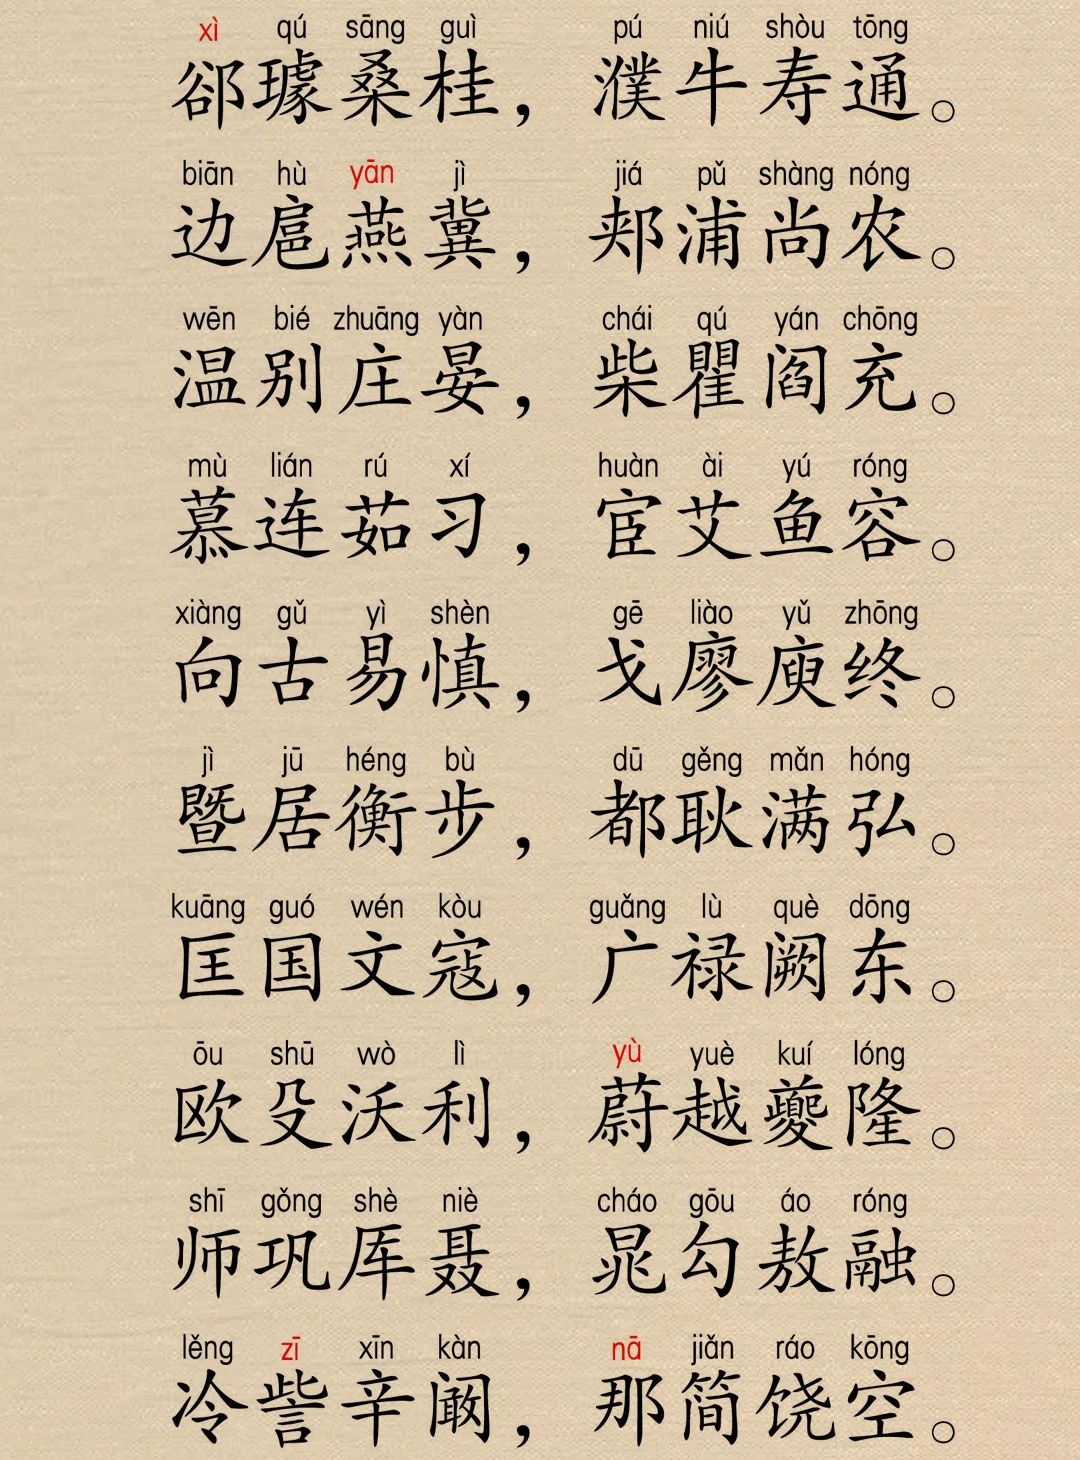 xì qú sāng guì pú niú shòu tōng
郤璩桑桂，濮牛寿通。
biān hù yān jì jiá pǔ shàng nóng
边扈燕冀，郏浦尚农。
wēn bié zhuāng yàn chái qú yán chōng
温别庄晏，柴瞿阎充。
mù lián rú xí huàn ài yú róng
慕连茹习，宦艾鱼容。
xiàng gǔ yì shèn gē liào yǔ zhōng
向古易慎，戈廖庾终。
jì jū héng bù dū gěng mǎn hóng
暨居衡步，都耿满弘。
kuāng guó wén kòu guǎng lù què dōng
匡国文寇，广禄阙东。
ōu shū wò lì yù yuè kuí lóng
欧殳沃利，蔚越夔隆。
shī gǒng shè niè cháo gōu áo róng
师巩厍聂，晁勾敖融。
lěng zī xīn kàn nā jiǎn ráo kōng
冷訾辛阚，那简饶空。